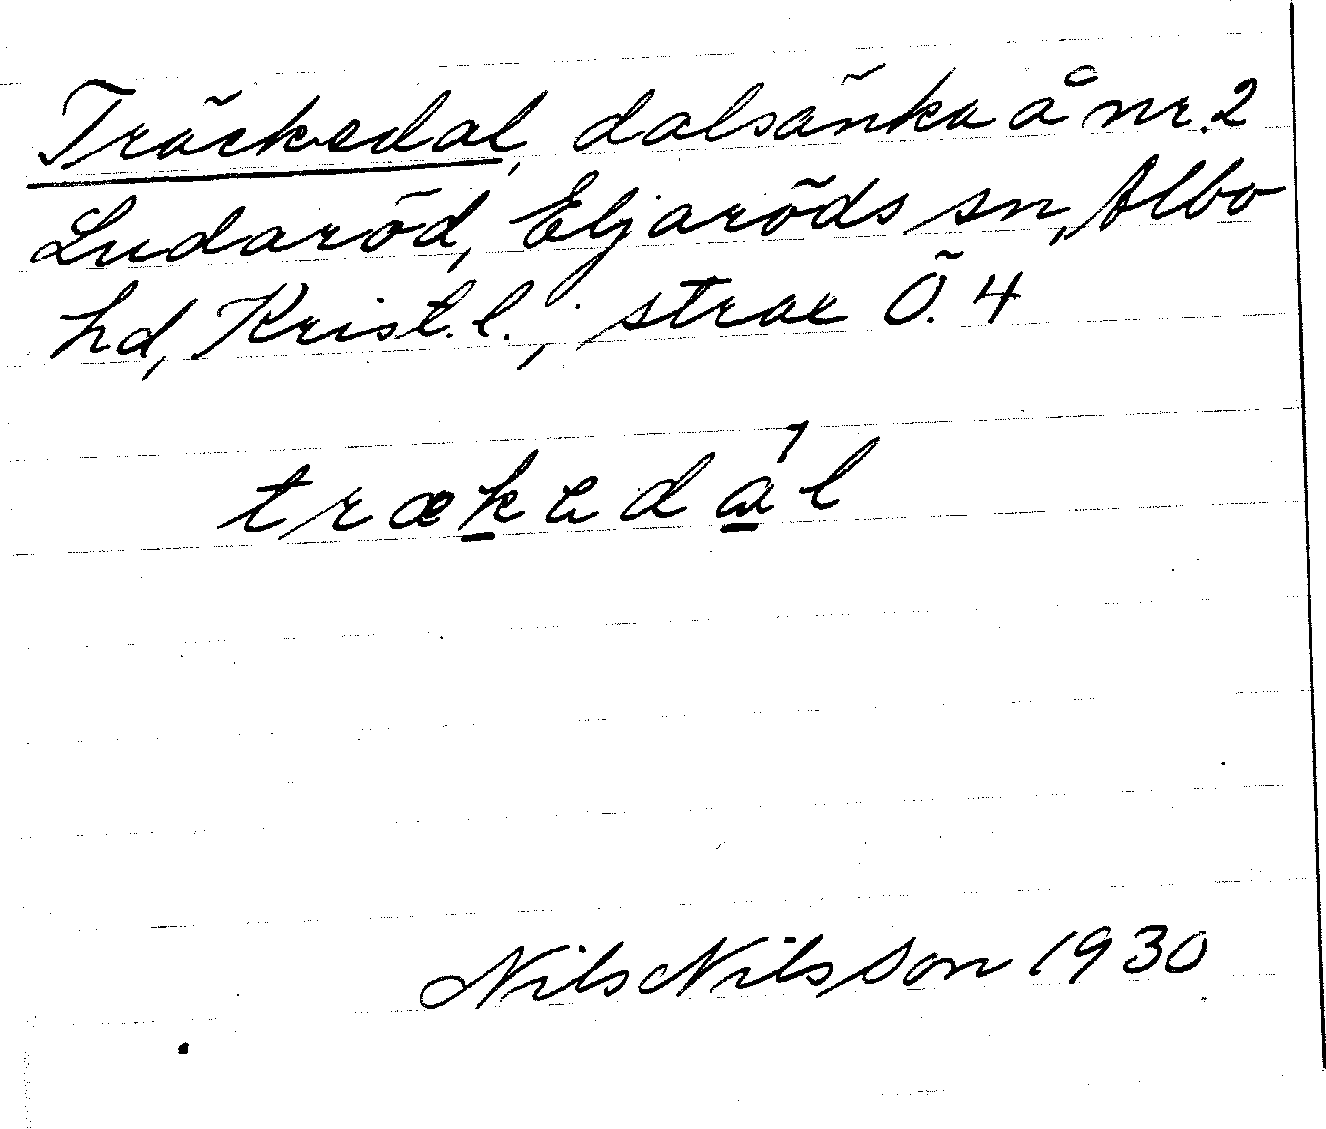 Träckedal, dalsänka å nr. 2
Ludaröd, Eljaröds sn, Albo
hd, Krist. l.; strax Ö. 4
trækedál
Nils Nilsson 1930